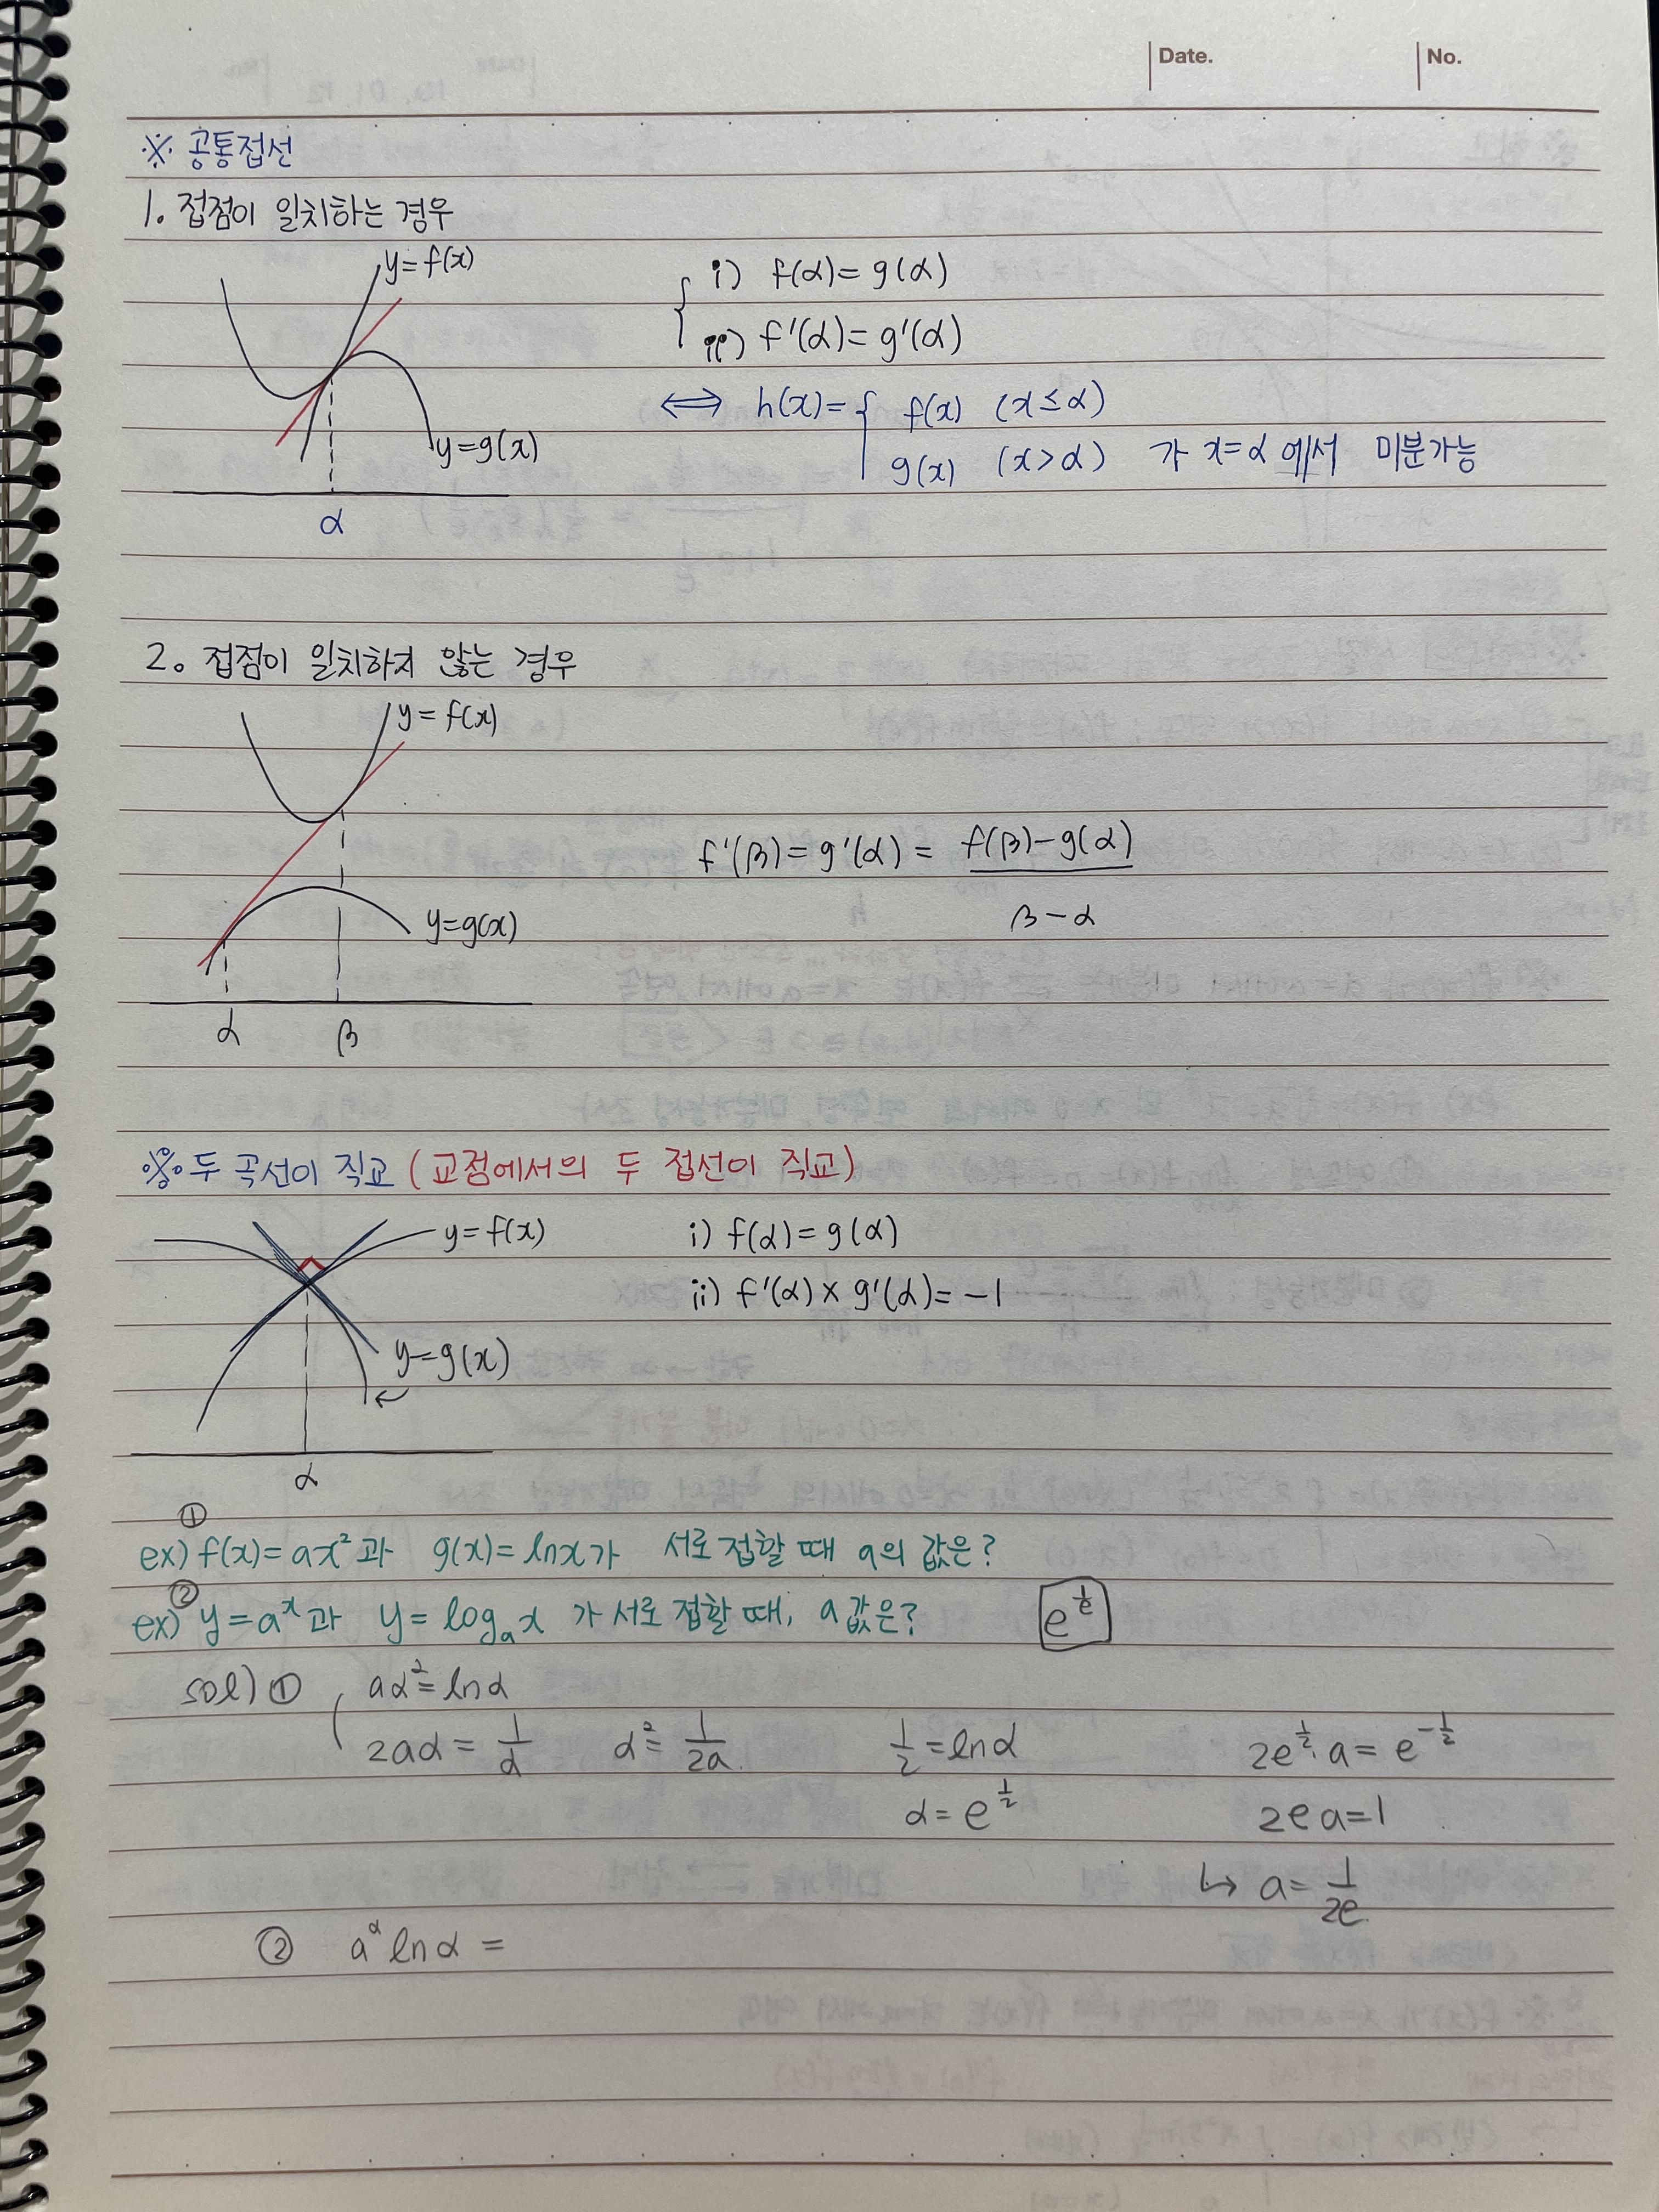 Date. No.
※ 공통접선
1. 접점이 일치하는 경우
y=f(x)
i) f(α)=g(α)
ii) f'(α)=g'(α)
⟺ h(x)= f(x) (x≤α)
g(x) (x>α) 가 x=α에서 미분가능
y=g(x)
α
2. 접점이 일치하지 않는 경우
y=f(x)
f'(β)=g'(α)= f(β)-g(α)
β-α
y=g(x)
α β
※ 두 곡선이 직교 (교점에서의 두 접선이 직교)
y=f(x)
i) f(α)=g(α)
ii) f'(α)×g'(α)=-1
y=g(x)
α
①
ex) f(x)=ax²과 g(x)=lnx가 서로 접할 때 a의 값은?
②
ex) y=aˣ과 y=logₐx 가 서로 접할 때, a값은? e^(1/e)
sol) ① aα²=lnα
2aα=1/α α²=1/2a 1/2=lnα 2e^(1/2)·a=e^(-1/2)
α=e^(1/2) 2ea=1
↳ a=1/2e
② a^α lnα =